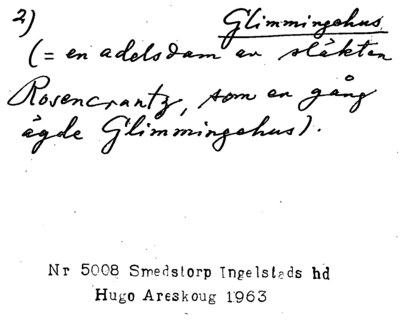 2) Glimmingehus
(= en adelsdam av släkten
Rosencrantz, som en gång
ägde Glimmingehus).
Nr 5008 Smedstorp Ingelstads hd
Hugo Areskoug 1963